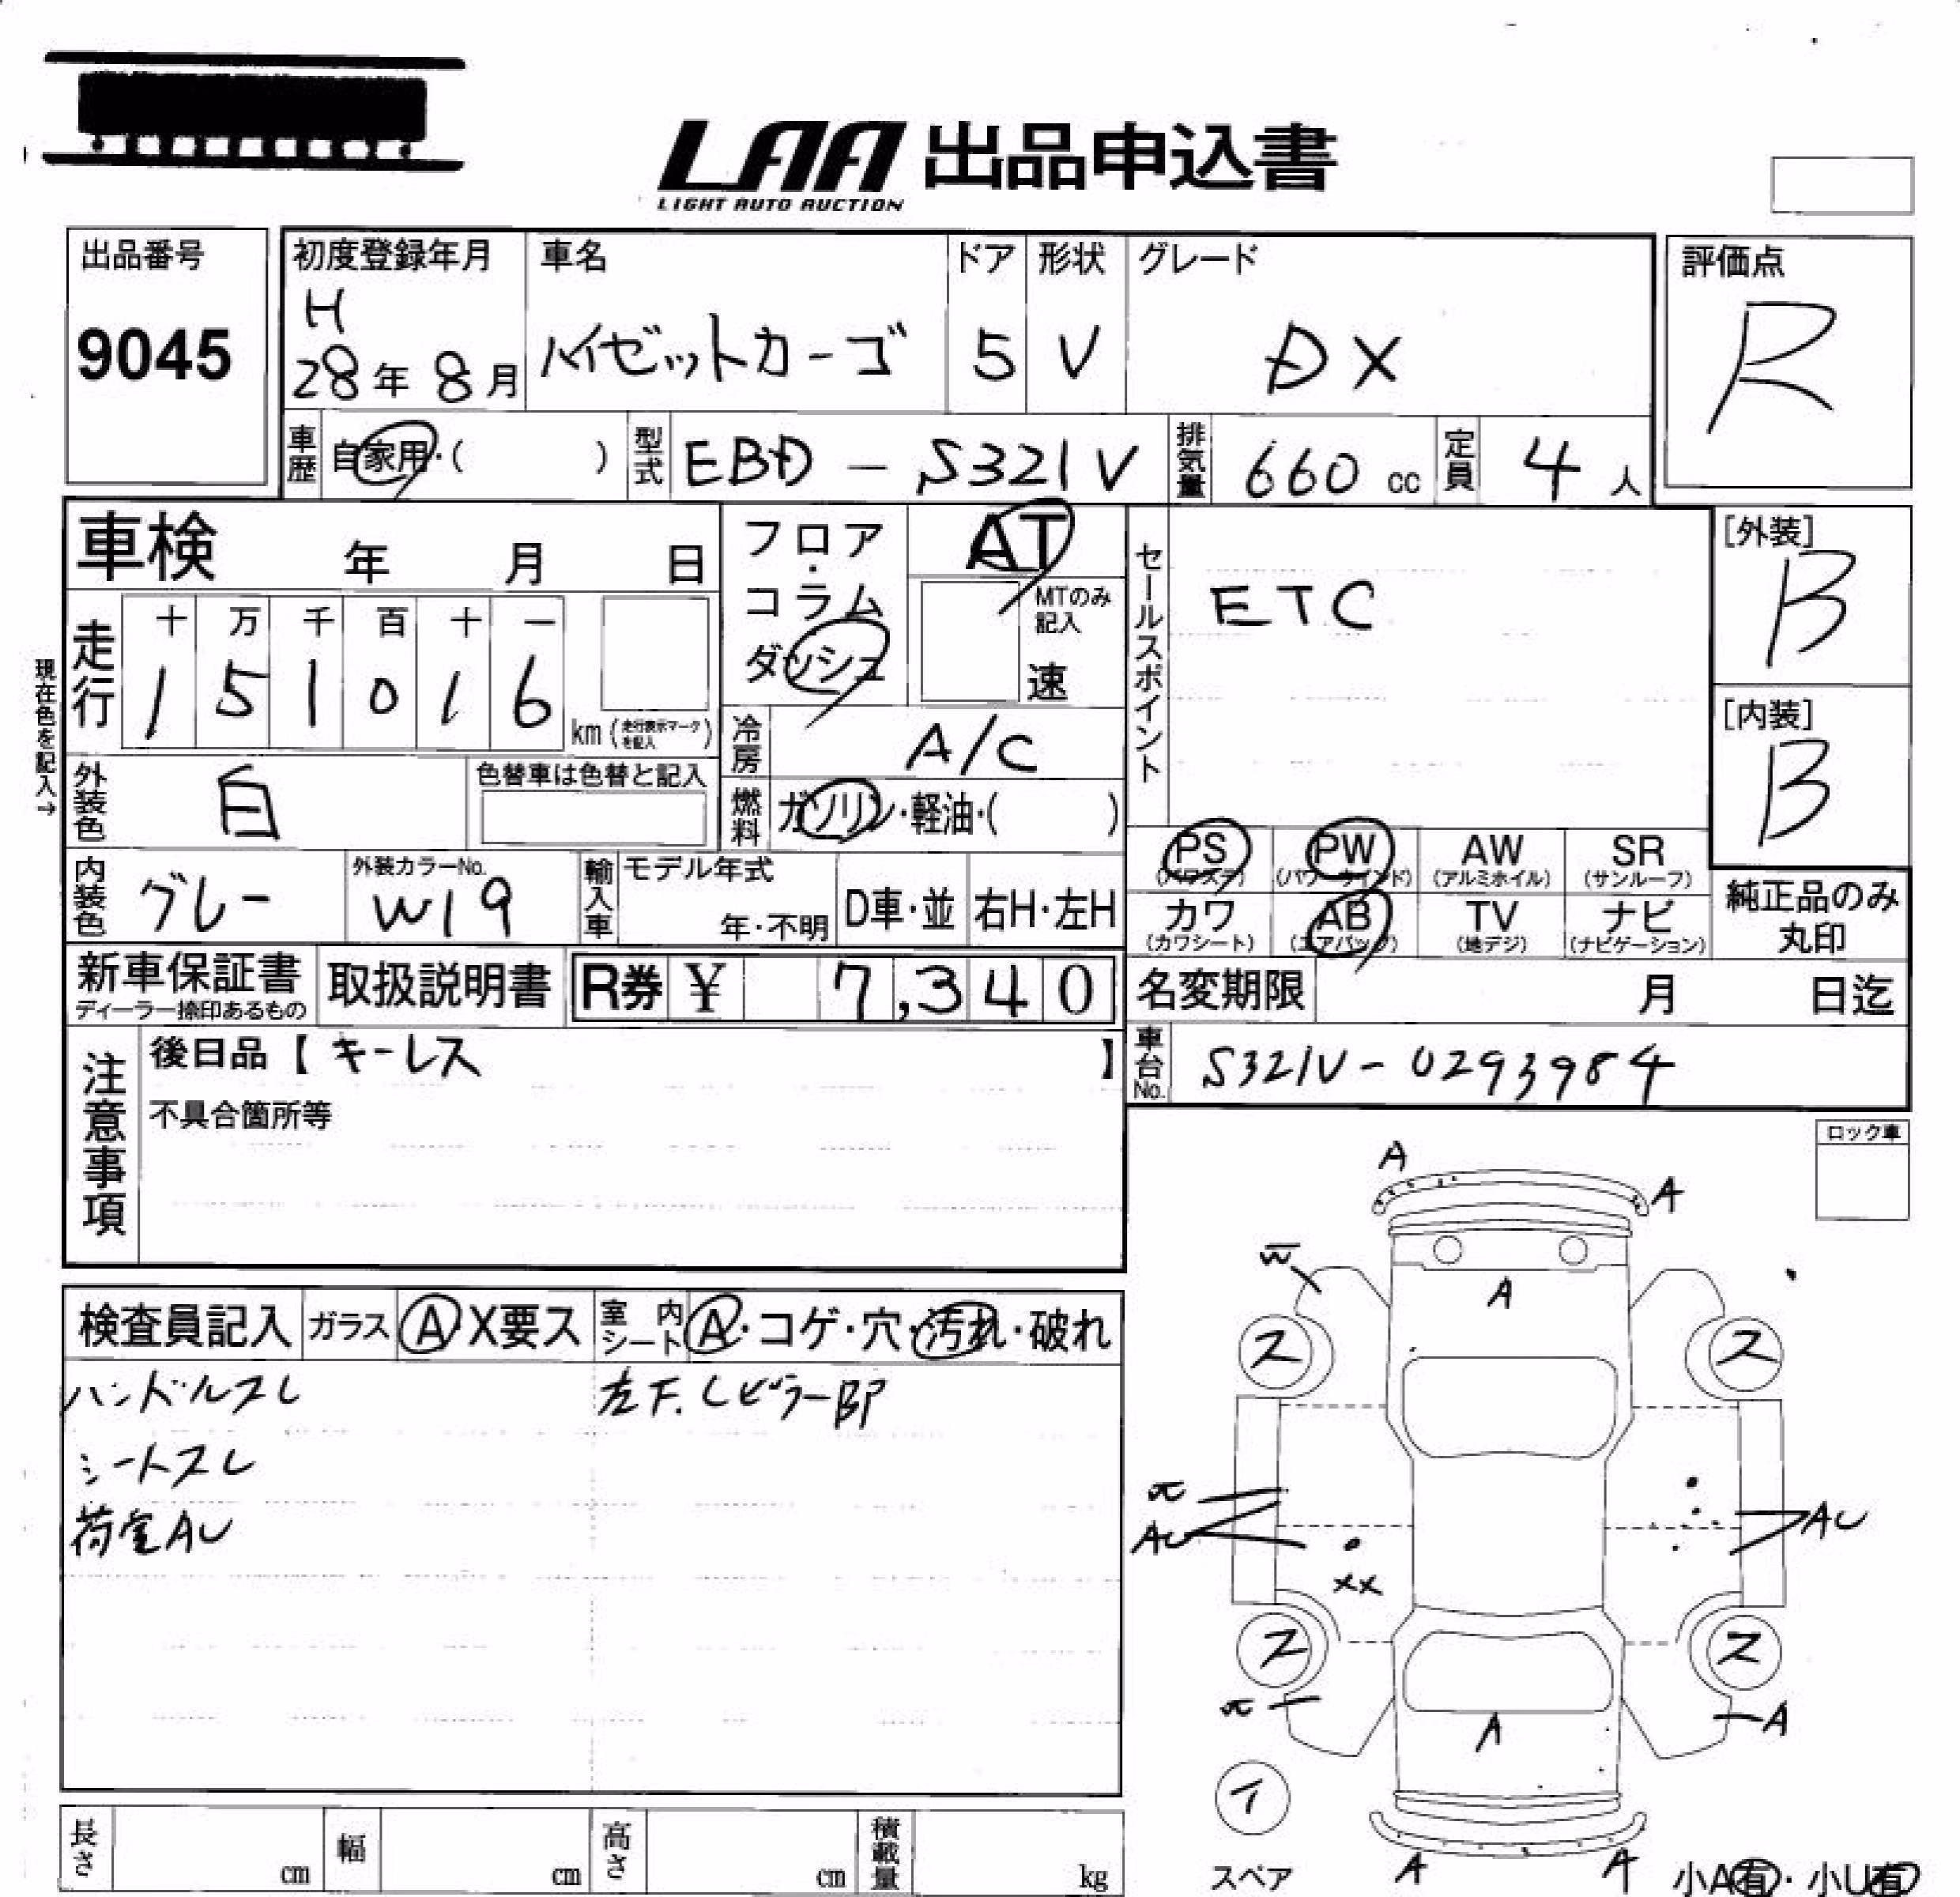 LAA 出品申込書
LIGHT AUTO AUCTION
出品番号 9045
初度登録年月 H 28年 8月
車名 ハイゼットカーゴ
ドア 5
形状 V
グレード DX
評価点 R
車歴 自家用・( )
型式 EBD - S321V
排気量 660 cc
定員 4 人
車検 年 月 日
現在色を記入→
走行 十 万 千 百 十 一
1 5 1 0 1 6 km (走行表示マークを記入)
フロア・コラム ダッシュ
AT
MTのみ記入
速
冷房 A/C
燃料 ガソリン・軽油・( )
セールスポイント
ETC
[外装] B
[内装] B
外装色 白
色替車は色替と記入
内装色 グレー
外装カラーNo. W19
輸入車 モデル年式 年・不明
D車・並
右H・左H
PS (パワステ)
PW (パワーウインド)
AW (アルミホイル)
SR (サンルーフ)
カワ (カワシート)
AB (エアバッグ)
TV (地デジ)
ナビ (ナビゲーション)
純正品のみ丸印
新車保証書
ディーラー捺印あるもの
取扱説明書
R券 ¥ 7,340
名変期限 月 日迄
車台No. S321V-0293984
注意事項
後日品【 キーレス 】
不具合箇所等
ロック車
検査員記入
ガラス A・X要ス
室内シート A・コゲ・穴・汚れ・破れ
ハンドルスレ
シートスレ
荷室AU
左F.Cピラー部P
A
A
W
A
ス
ス
AU
AU
XX
ス
ス
A
A
イ
スペア
A
A
小A有・小U有
長さ cm
幅 cm
高さ cm
積載量 kg